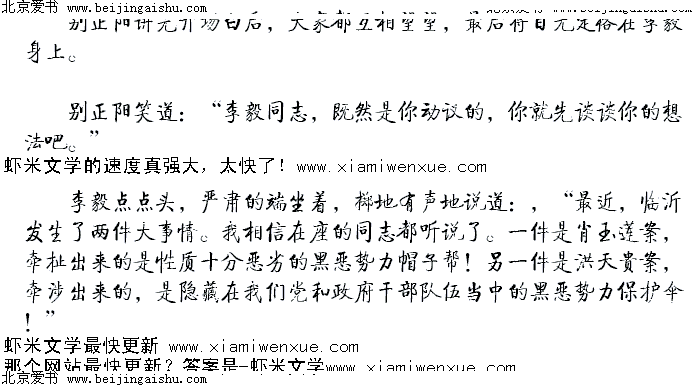 北京爱书 www.beijingaishu.com
北京爱书 www.beijingaishu.com
别正阳讲完开场白后，大家都互相望望，最后将目光定格在李毅
身上。
别正阳笑道：“李毅同志，既然是你动议的，你就先谈谈你的想
法吧。”
虾米文学的速度真强大，太快了！www.xiamiwenxue.com
李毅点点头，严肃的端坐着，掷地有声地说道：，“最近，临沂
发生了两件大事情。我相信在座的同志都听说了。一件是肖玉莲案，
牵扯出来的是性质十分恶劣的黑恶势力帽子帮！另一件是洪天贵案，
牵涉出来的，是隐藏在我们党和政府干部队伍当中的黑恶势力保护伞
！”
虾米文学最快更新 www.xiamiwenxue.com
那个网站最快更新？答案是-虾米文学www.xiamiwenxue.com
北京爱书 www.beijingaishu.com